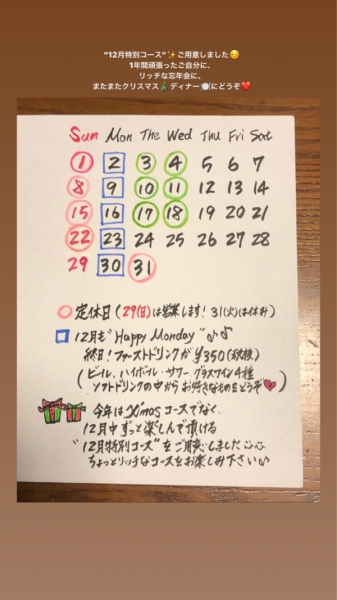 "12月特別コース"✨ご用意しました😊
1年間頑張ったご自分に、
リッチな忘年会に、
またまたクリスマス🎄ディナー🍽にどうぞ❤️
Sun Mon The Wed Thu Fri Sat
1 2 3 4 5 6 7
8 9 10 11 12 13 14
15 16 17 18 19 20 21
22 23 24 25 26 27 28
29 30 31
○定休日(29(日)は営業します!31(火)は休み)
□12月も"Happy Monday"♪♪
終日!ファーストドリンクが¥350(税抜)
(ビール、ハイボール・サワー、グラスワイン4種
ソフトドリンクの中からお好きなものをどうぞ♥)
今年はX'masコースでなく、
12月中ずっと楽しんで頂ける
"12月特別コース"をご用意しました
ちょっとリッチなコースをお楽しみ下さい♪